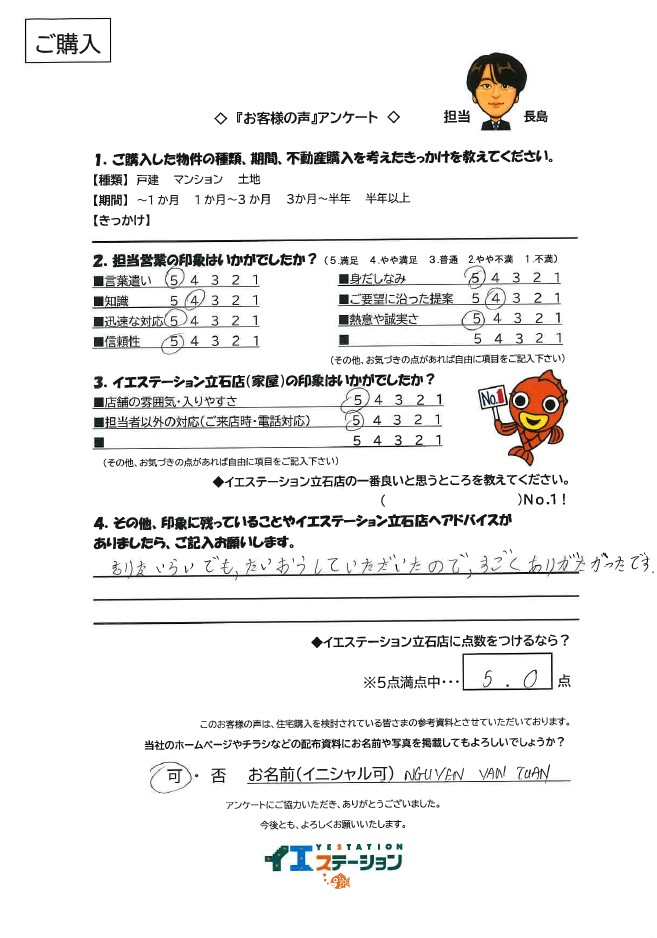 ご購入
◇『お客様の声』アンケート◇ 担当 長島
1. ご購入した物件の種類、期間、不動産購入を考えたきっかけを教えてください。
【種類】 戸建 マンション 土地
【期間】 ～1か月 1か月～3か月 3か月～半年 半年以上
【きっかけ】
2. 担当営業の印象はいかがでしたか？（5.満足 4.やや満足 3.普通 2.やや不満 1.不満）
■言葉遣い 5 4 3 2 1 ■身だしなみ 5 4 3 2 1
■知識 5 4 3 2 1 ■ご要望に沿った提案 5 4 3 2 1
■迅速な対応 5 4 3 2 1 ■熱意や誠実さ 5 4 3 2 1
■信頼性 5 4 3 2 1 ■ 5 4 3 2 1
（その他、お気づきの点があれば自由に項目をご記入下さい）
3. イエステーション立石店（家屋）の印象はいかがでしたか？
■店舗の雰囲気・入りやすさ 5 4 3 2 1
■担当者以外の対応（ご来店時・電話対応） 5 4 3 2 1
■ 5 4 3 2 1
No.1
（その他、お気づきの点があれば自由に項目をご記入下さい）
◆イエステーション立石店の一番良いと思うところを教えてください。
（ ）No.1！
4. その他、印象に残っていることやイエステーション立石店へアドバイスが
ありましたら、ご記入お願いします。
いらいでも,たいおうしていただいたので,すごくありがたかったです.
◆イエステーション立石店に点数をつけるなら？
※5点満点中・・・ 5.0 点
このお客様の声は、住宅購入を検討されている皆さまの参考資料とさせていただいております。
当社のホームページやチラシなどの配布資料にお名前や写真を掲載してもよろしいでしょうか？
可・否 お名前（イニシャル可） NGUYEN VAN TUAN
アンケートにご協力いただき、ありがとうございました。
今後とも、よろしくお願いいたします。
YESTATION
イエステーション